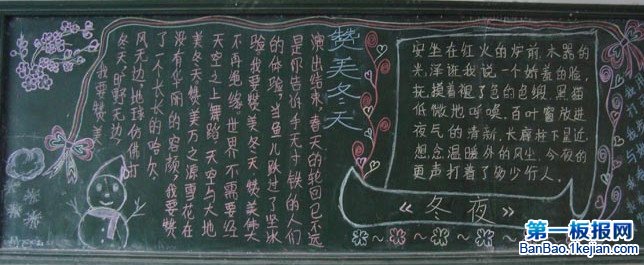 赞美冬天
我要赞美
冬天,旷野无边,
风无边,地球仿佛打
了一个长长的哈欠
没有华丽的容颜我要赞
美冬天美万之源雪花在
天空之上舞蹈,天空与大地
不再绝缘世界不需要经
验我要赞美冬天 赞美
的体验,当鱼儿跃过了坚冰
是你告诉手无寸铁的人们
演出结束,春天的轮回已不远
安坐在红火的炉前,木器的
光泽诳我说一个娇羞的脸,
抚摸着褪了色的色绸,黑猫
低微地呼唤。百叶窗放进
夜气的清新,长廊柱下星近
想念温暖外的风尘,今夜的
更声打着了多少行人。
《冬夜》
第一板报网
BanBao.1kejian.com